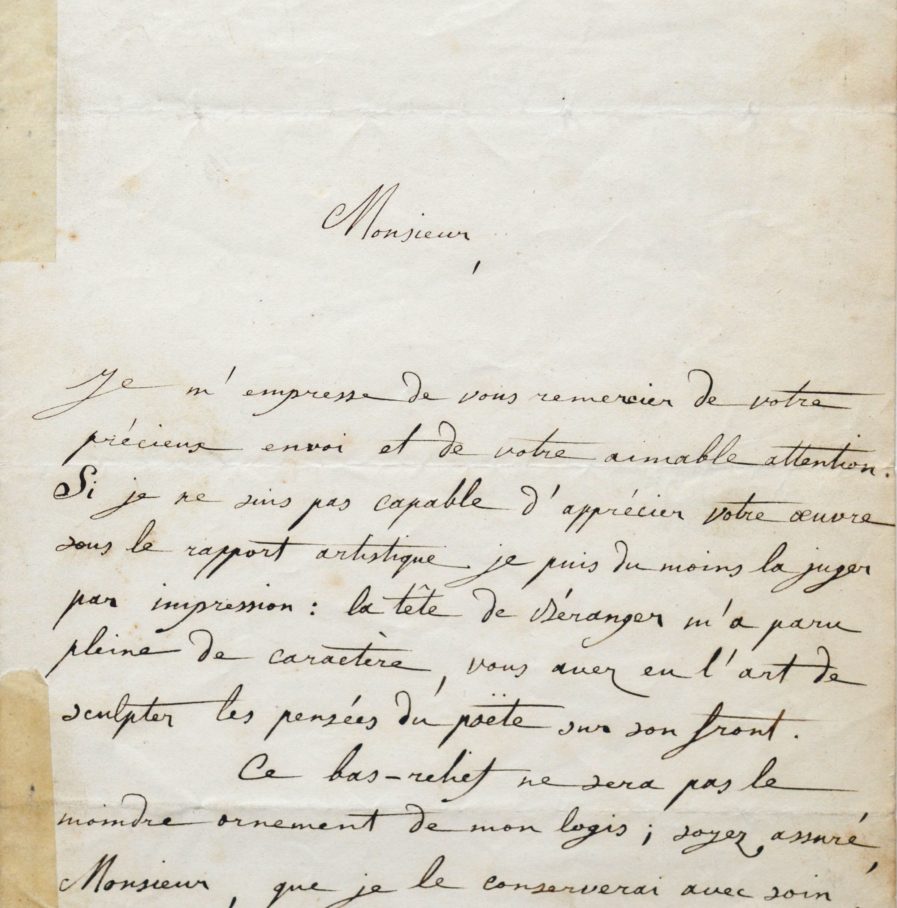 Monsieur,
Je m'empresse de vous remercier de votre
précieux envoi et de votre aimable attention.
Si je ne suis pas capable d'apprécier votre œuvre
sous le rapport artistique je puis du moins la juger
par impression : la tête de Béranger m'a paru
pleine de caractère, vous avez eu l'art de
sculpter les pensées du poëte sur son front.
Ce bas-relief ne sera pas le
moindre ornement de mon logis ; soyez assuré,
Monsieur, que je le conserverai avec soin